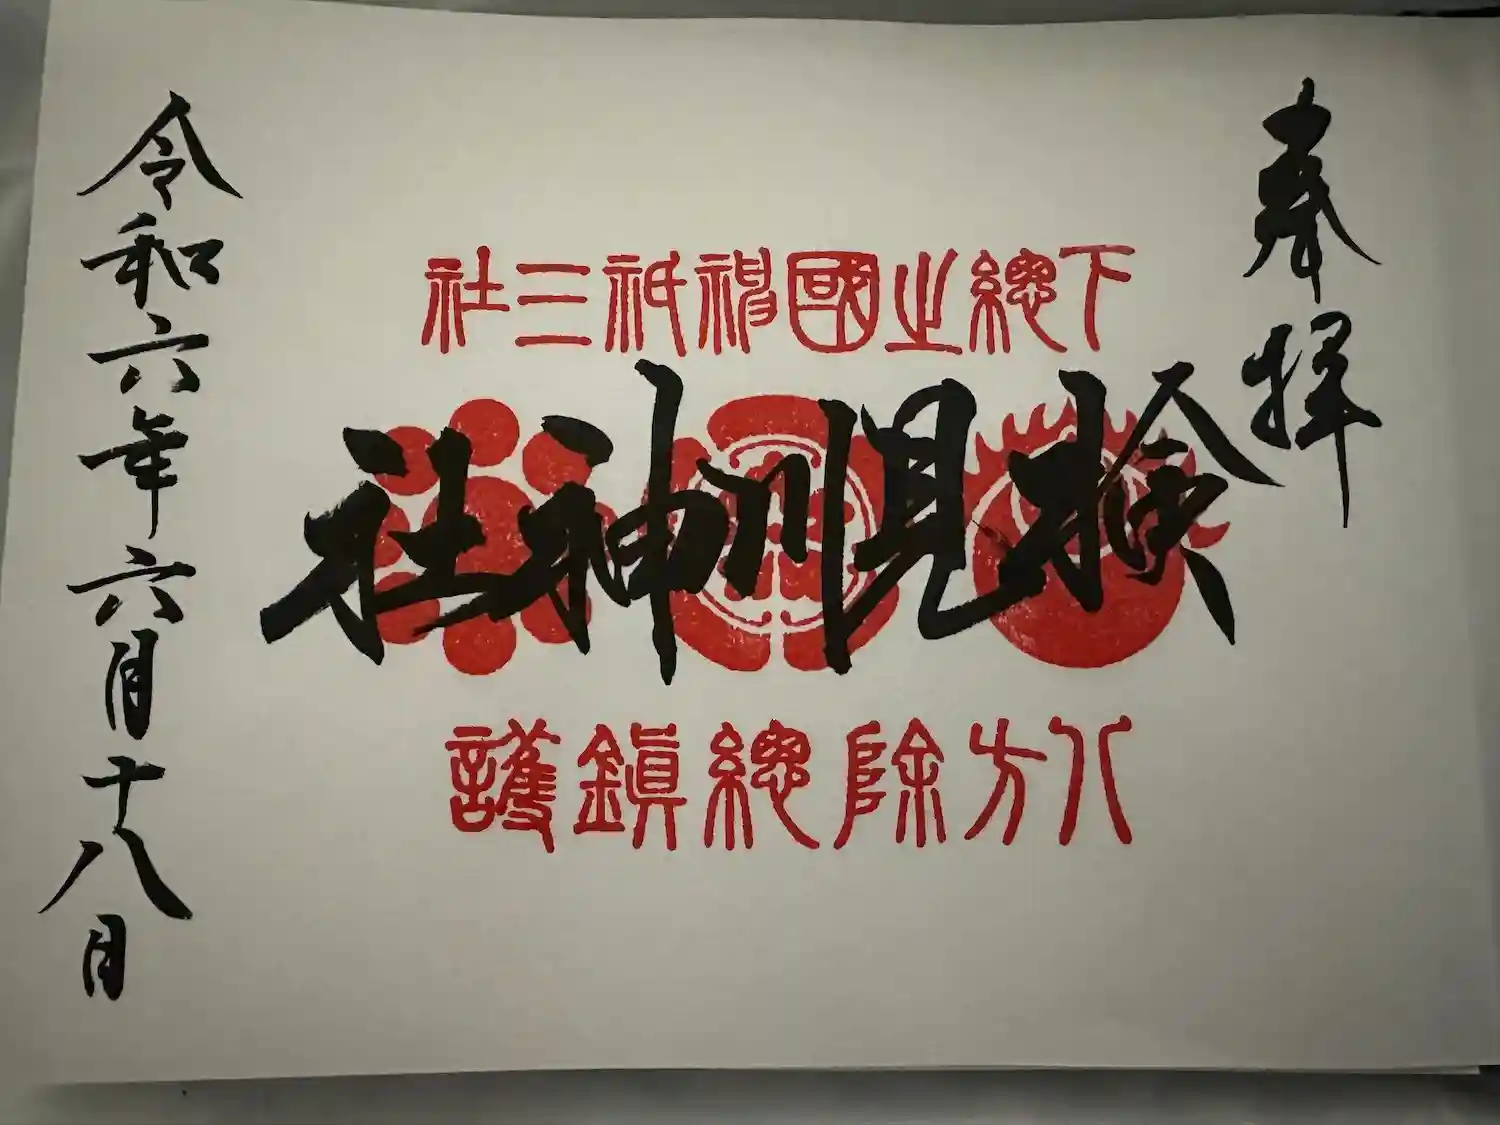 奉拝
下總之國神祇三社
検見川神社
八方除總鎮護
令和六年六月十八日